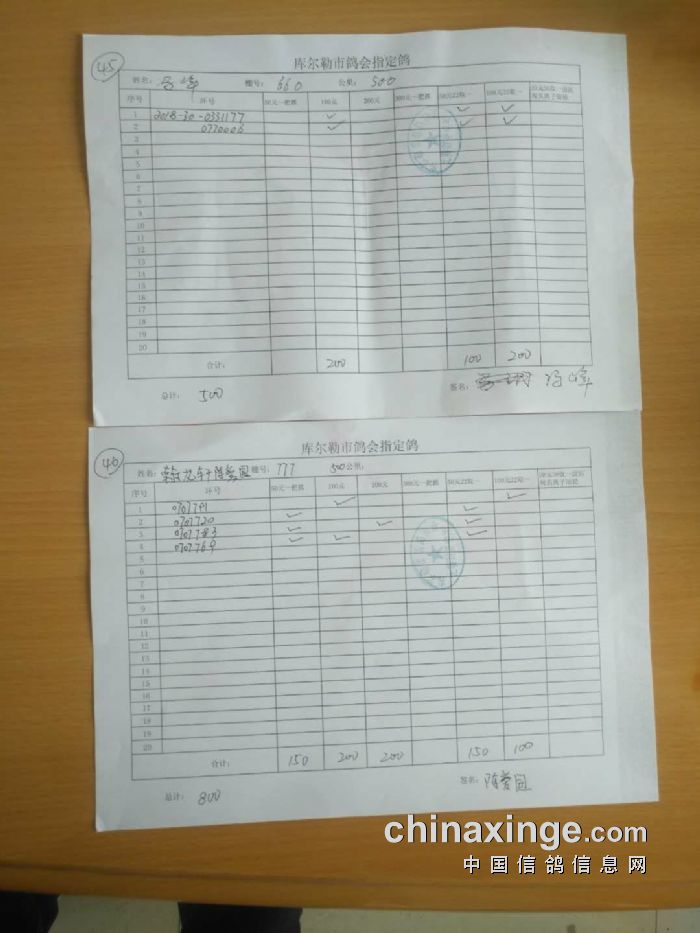 45
库尔勒市鸽会指定鸽
姓名: 棚号: 660 公里: 500
序号 环号 50元一把抓 100元 200元 300元一把抓 50元22取一 100元22取一
1 2018-30-0331177 ✓ ✓ ✓
2 0770006 ✓ ✓ ✓
3
4
5
6
7
8
9
10
11
12
13
14
15
16
17
18
19
20
合计: 200 100 200
总计: 500 签名:
46
库尔勒市鸽会指定鸽
姓名: 棚号: 777 500公里:
序号 环号 50元一把抓 100元 200元 300元一把抓 50元22取一 100元22取一
1
2 0707720
3
4 0707769
5
6
7
8
9
10
11
12
13
14
15
16
17
18
19
20
合计: 150 200 200 150 100
总计: 800 签名:
chinaxinge.com
中国信鸽信息网